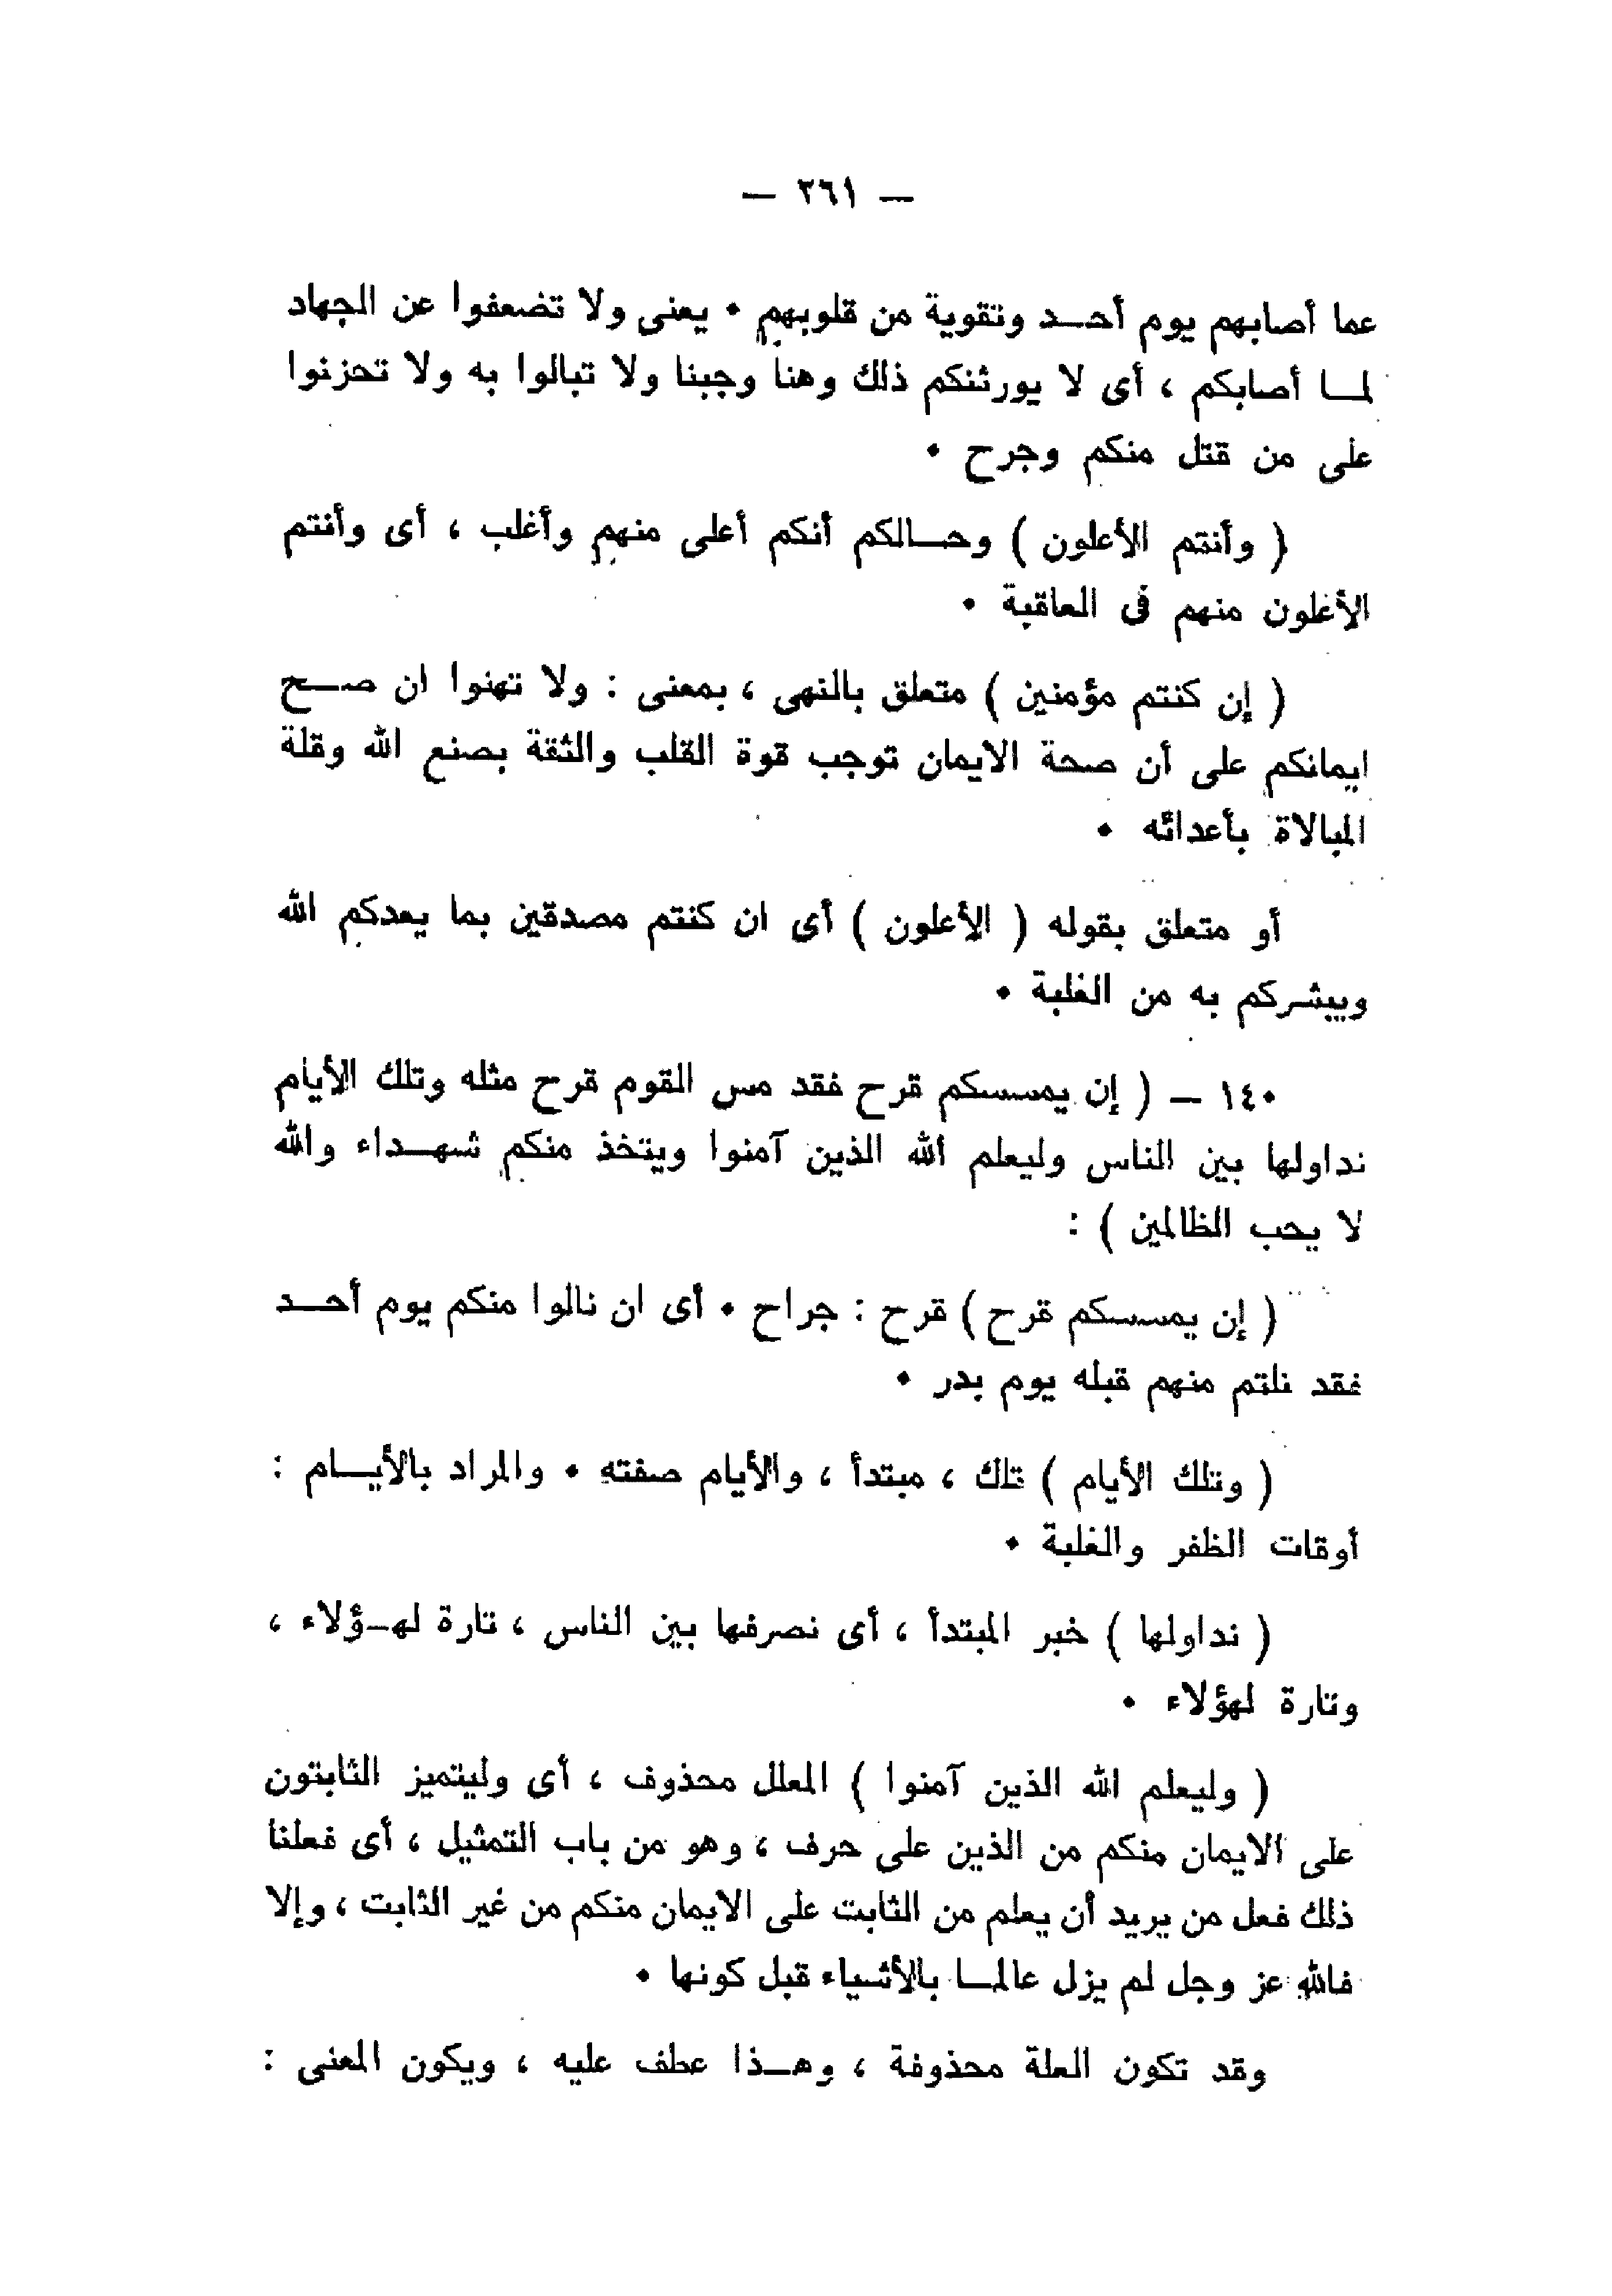 — ٢٦١ —
عما أصابهم يوم أحـد وتقوية من قلوبهم • يعنى ولا تضعفوا عن الجهاد
لمـا أصابكم ، أى لا يورثنكم ذلك وهنا وجبنا ولا تبالوا به ولا تحزنوا
على من قتل منكم وجرح •
( وأنتم الأعلون ) وحـالكم أنكم أعلى منهم وأغلب ، أى وأنتم
الأعلون منهم فى العاقبة •
( إن كنتم مؤمنين ) متعلق بالنهى ، بمعنى : ولا تهنوا ان صـح
ايمانكم على أن صحة الايمان توجب قوة القلب والثقة بصنع الله وقلة
المبالاة بأعدائه •
أو متعلق بقوله ( الأعلون ) أى ان كنتم مصدقين بما يعدكم الله
ويبشركم به من الغلبة •
١٤٠ — ( إن يمسسكم قرح فقد مس القوم قرح مثله وتلك الأيام
نداولها بين الناس وليعلم الله الذين آمنوا ويتخذ منكم شهـداء والله
لا يحب الظالمين ) :
( إن يمسسكم قرح ) قرح : جراح • أى ان نالوا منكم يوم أحـد
فقد نلتم منهم قبله يوم بدر •
( وتلك الأيام ) تلك ، مبتدأ ، والأيام صفته • والمراد بالأيـام :
أوقات الظفر والغلبة •
( نداولها ) خبر المبتدأ ، أى نصرفها بين الناس ، تارة لهـؤلاء ،
وتارة لهؤلاء •
( وليعلم الله الذين آمنوا ) المعلل محذوف ، أى وليتميز الثابتون
على الايمان منكم من الذين على حرف ، وهو من باب التمثيل ، أى فعلنا
ذلك فعل من يريد أن يعلم من الثابت على الايمان منكم من غير الثابت ، وإلا
فالله عز وجل لم يزل عالمـا بالأشياء قبل كونها •
وقد تكون العلة محذوفة ، وهـذا عطف عليه ، ويكون المعنى :